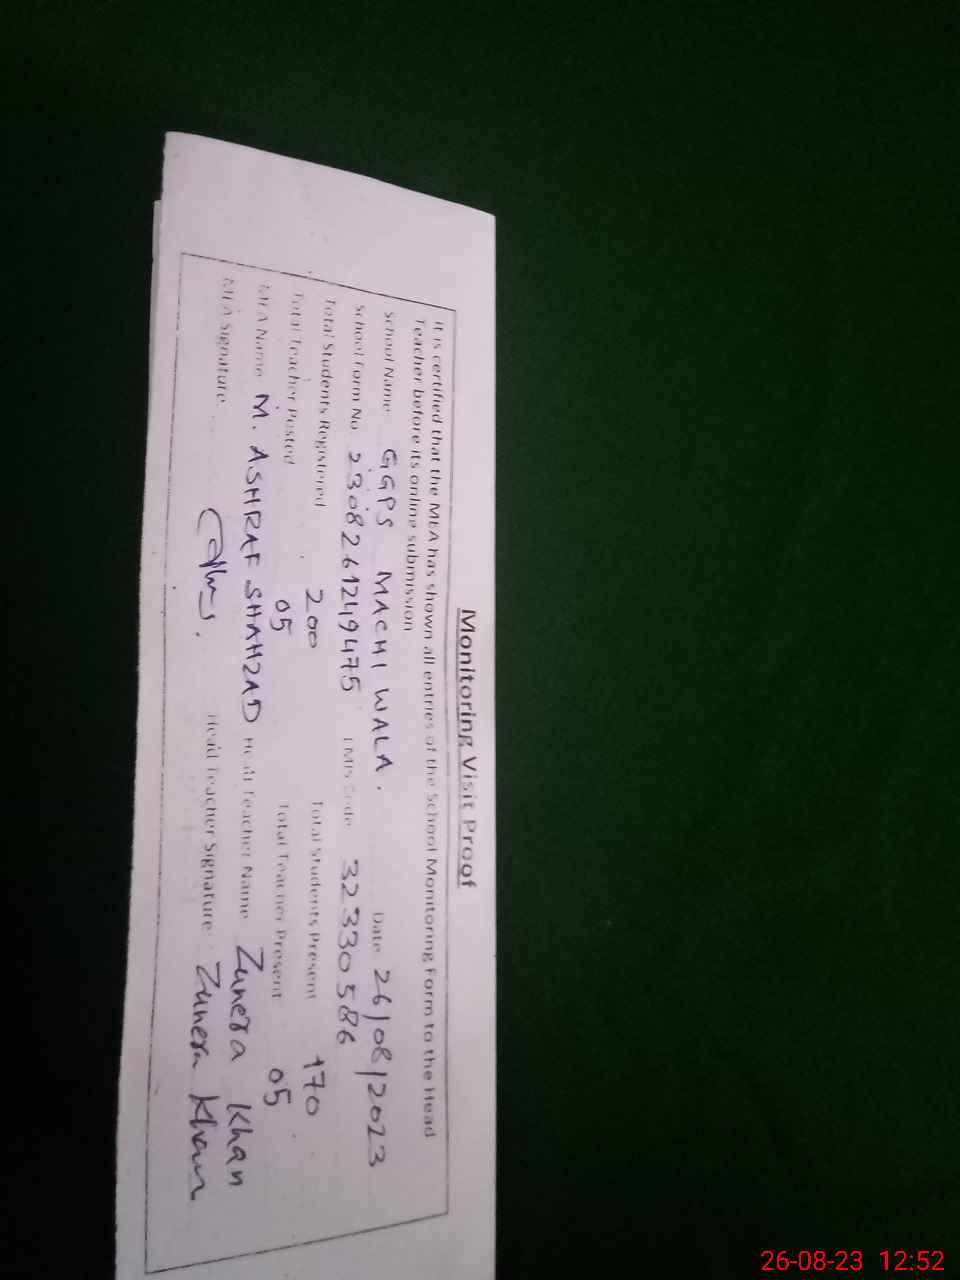 Monitoring Visit Proof
It is certified that the MEA has shown all entries of the School Monitoring Form to the Head
Teacher before its online submission
School Name GGPS MACHI WALA. Date 26/08/2023
School Form No 2308261249475 EMIS Code 32330586
Total Students Registered 200 Total Students Present 170
Total Teacher Posted 05 Total Teacher Present 05
MEA Name M. ASHRAF SHAHZAD Head Teacher Name Zunera Khan
MEA Signature Head Teacher Signature Zunera Khan
26-08-23 12:52